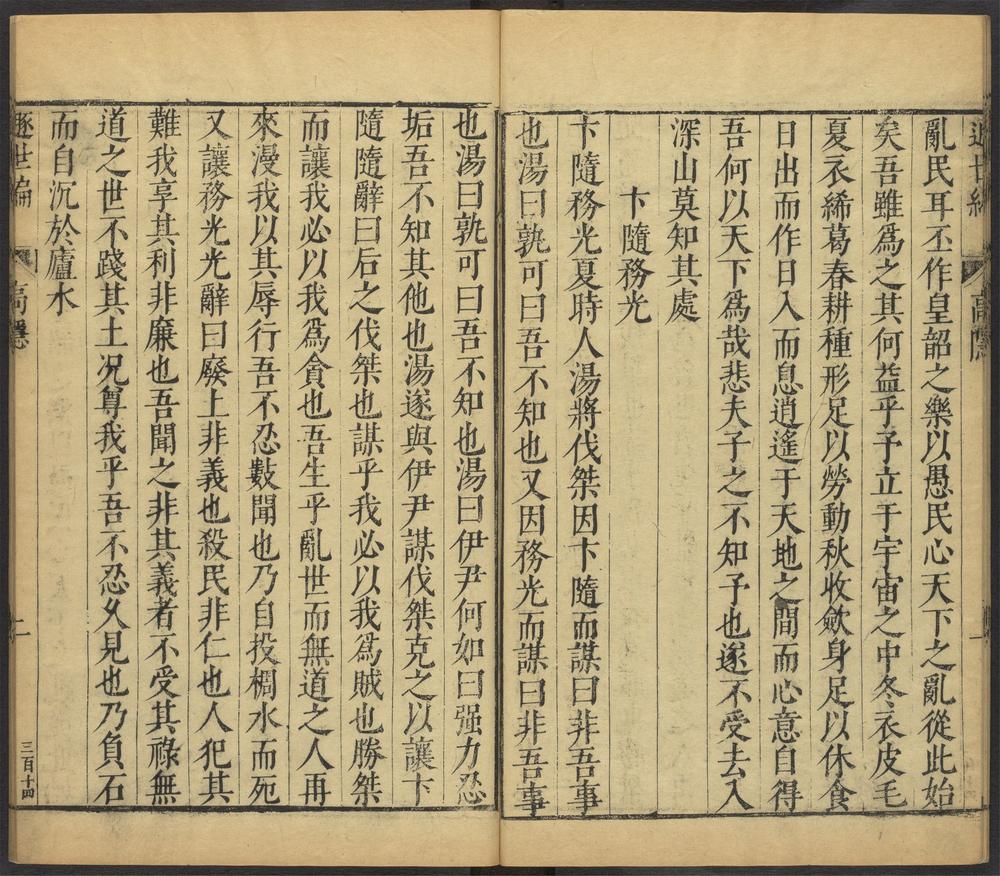 亂民耳丕作皇韶之樂以愚民心天下之亂從此始
矣吾雖爲之其何益乎予立于宇宙之中冬衣皮毛
夏衣絺葛春耕種形足以勞動秋收歛身足以休食
日出而作日入而息逍遙于天地之間而心意自得
吾何以天下爲哉悲夫子之不知予也遂不受去入
深山莫知其處
卞隨務光
卞隨務光夏時人湯將伐桀因卞隨而謀曰非吾事
也湯曰孰可曰吾不知也又因務光而謀曰非吾事
也湯曰孰可曰吾不知也湯曰伊尹何如曰强力忍
垢吾不知其他也湯遂與伊尹謀伐桀克之以讓卞
隨隨辭曰后之伐桀也謀乎我必以我爲賊也勝桀
而讓我必以我爲貪也吾生乎亂世而無道之人再
來漫我以其辱行吾不忍數聞也乃自投椆水而死
又讓務光光辭曰廢上非義也殺民非仁也人犯其
難我享其利非廉也吾聞之非其義者不受其祿無
道之世不踐其土况尊我乎吾不忍久見也乃負石
而自沉於廬水
遯世編 高隱 二 三百十四